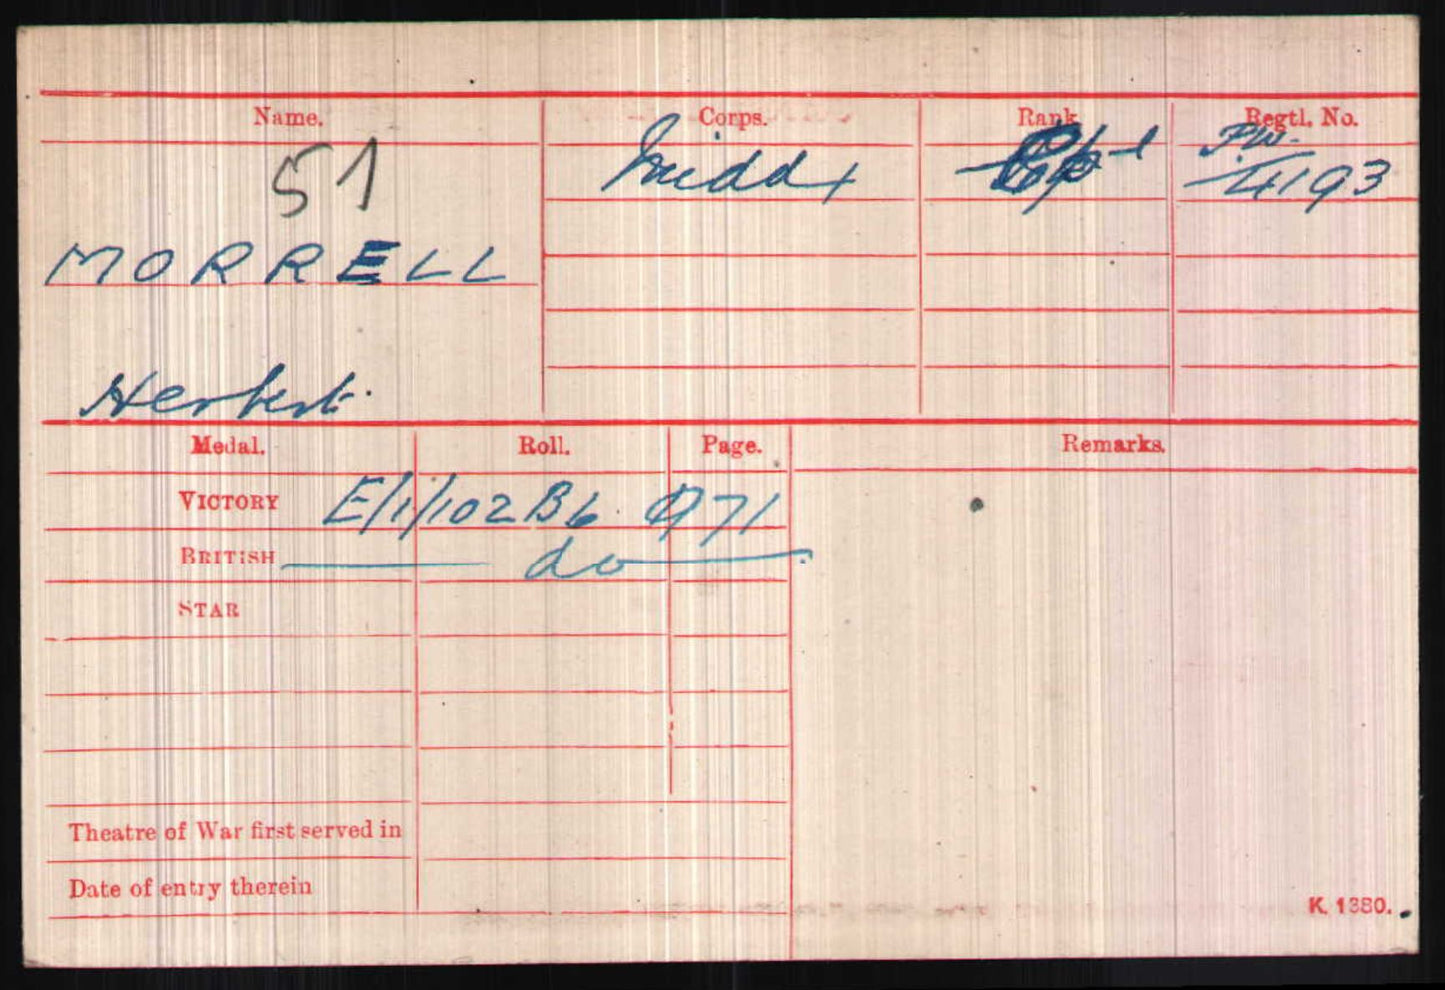 Name. Corps. Rank Regtl. No.
51 Middx Cpl P.W. /4193
MORRELL
Herbert.
Medal. Roll. Page. Remarks.
VICTORY E/1/102B6. 971
BRITISH do
STAR
Theatre of War first served in
Date of entry therein
K. 1380.